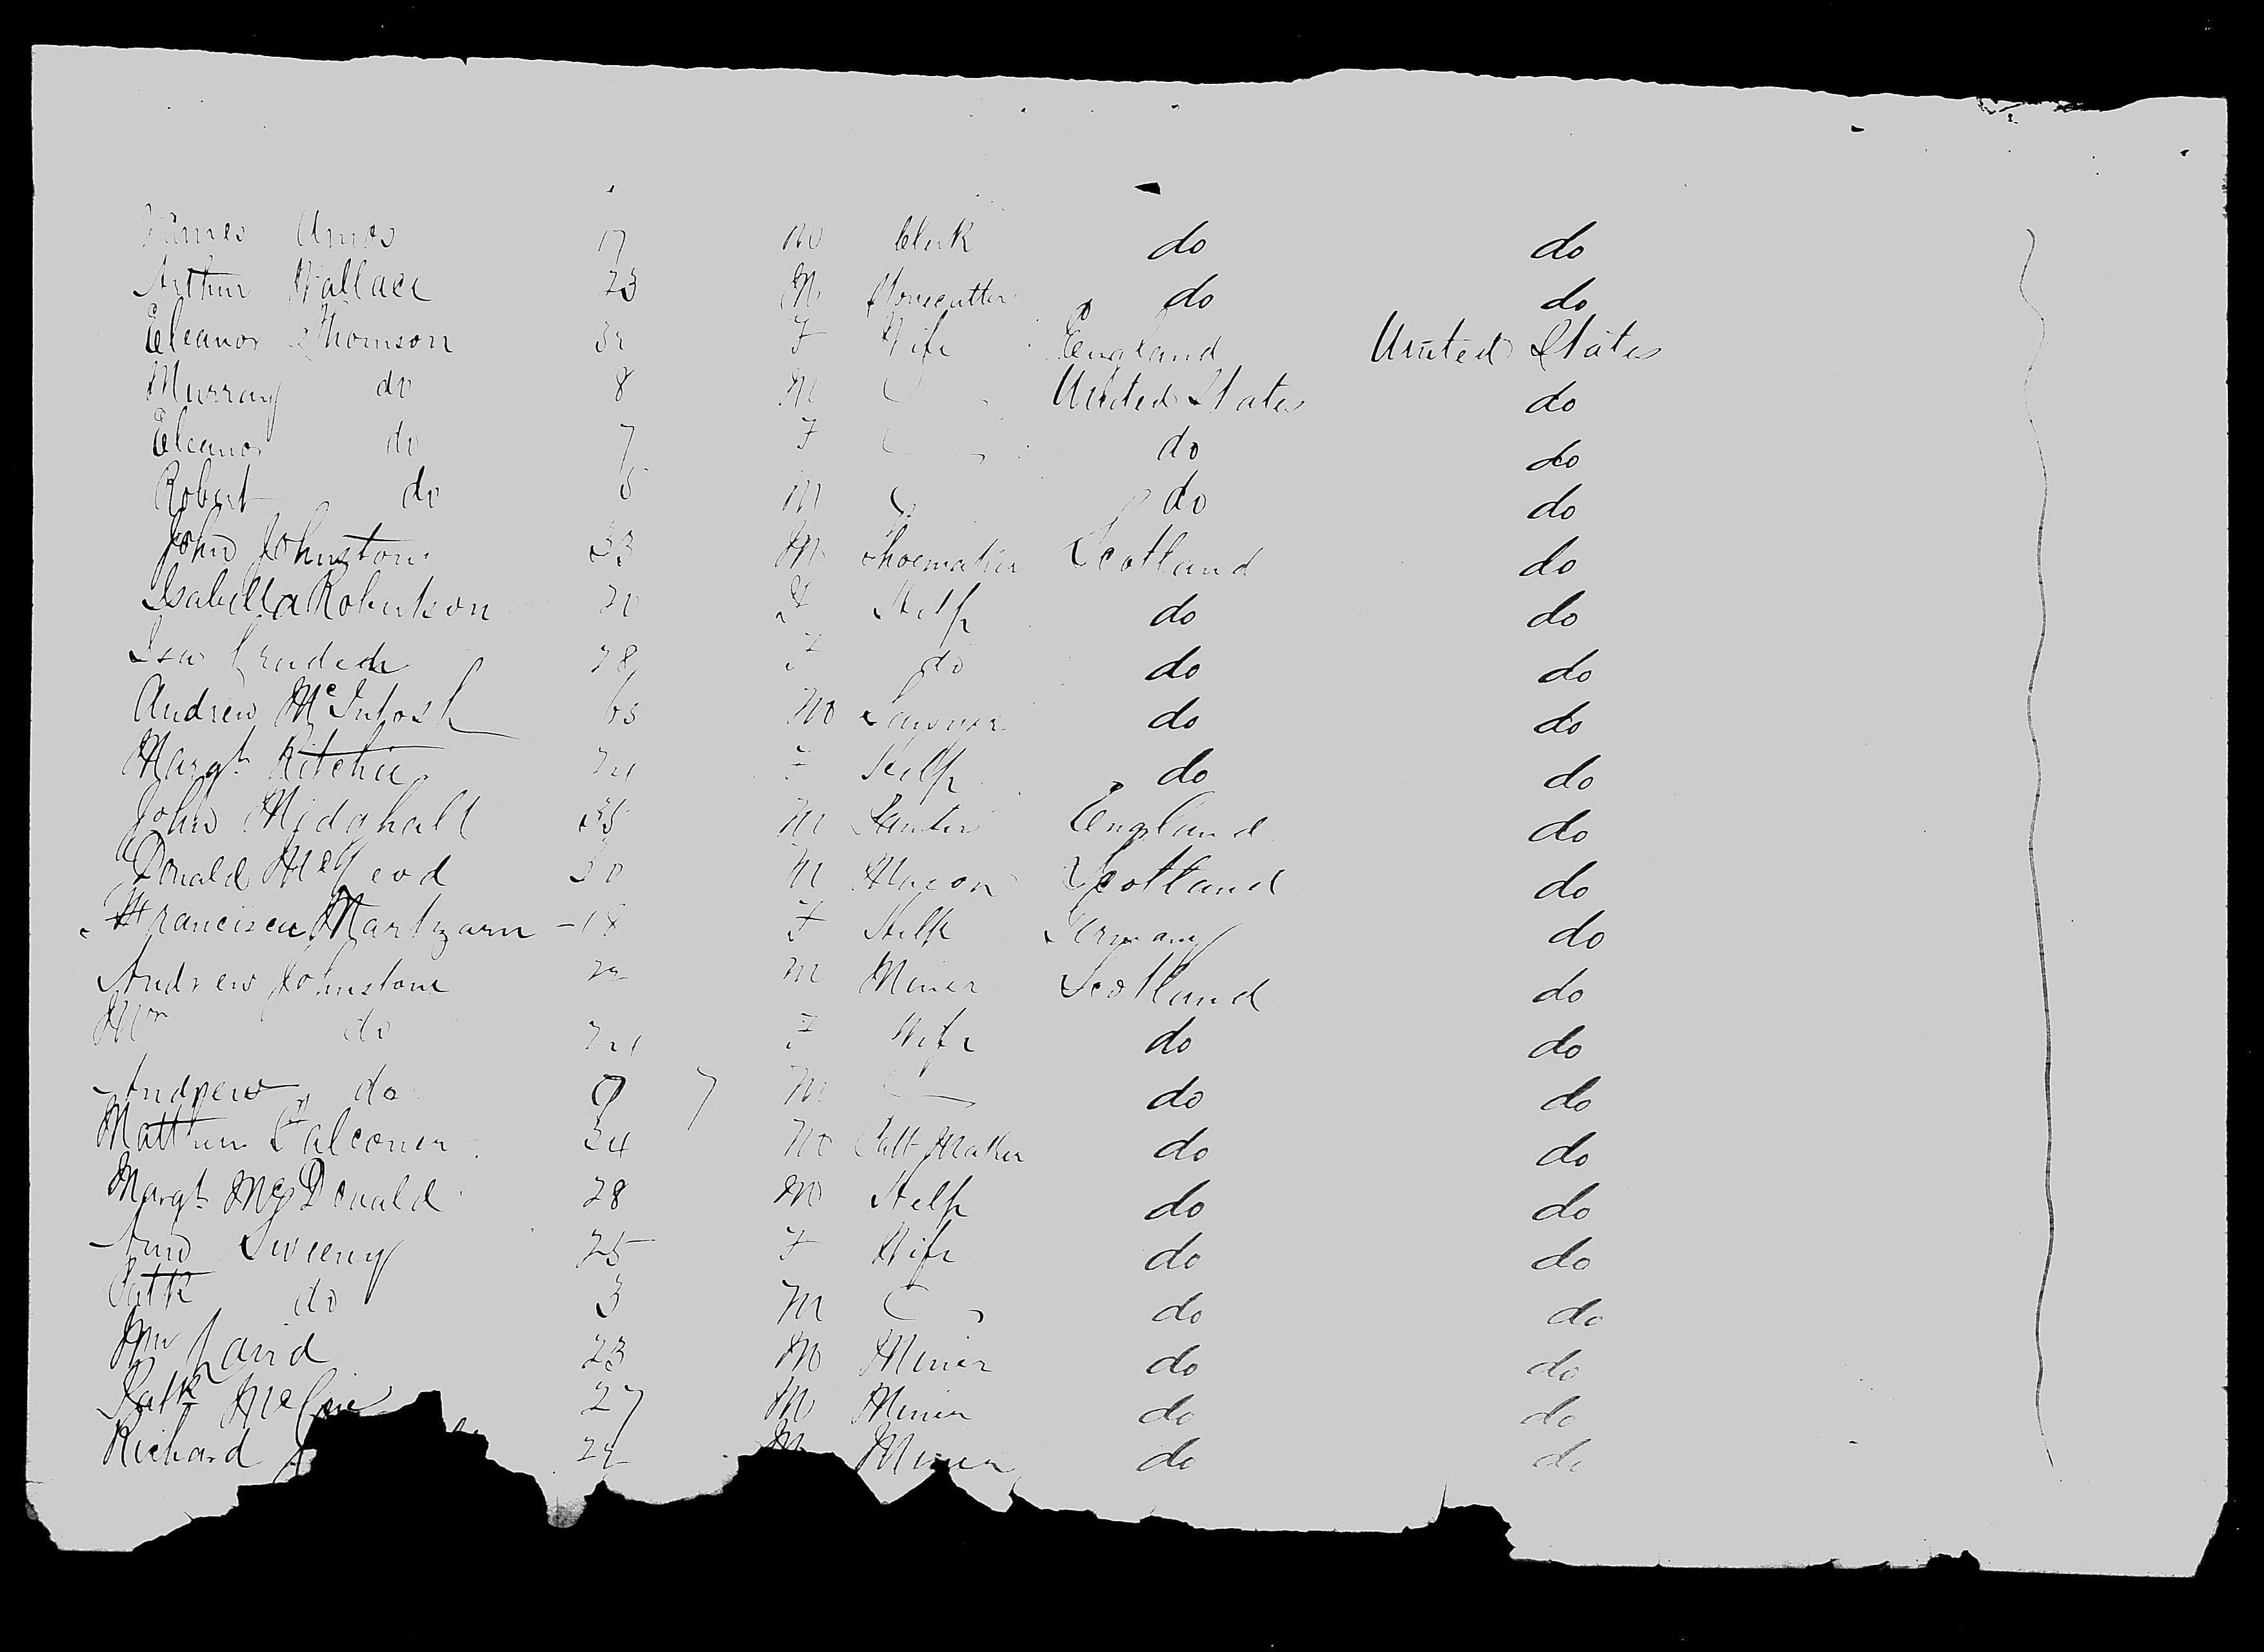 James Amos 17 M Clerk do do
Arthur Wallace 23 M Stonecutter do do
Eleanor Thomson 32 F Wife England United States
Murray do 8 M United States do
Eleanor do 7 F do do
Robert do 5 M do do
John Johnston 33 M Shoemaker Scotland do
Isabella Robertson F Help do do
28 F do do do
Andrew McIntosh M Lawyer do do
Margt Ritchie F Help do do
John Midghall 35 M England do
Donald McLeod 30 M Mason Scotland do
Martzarn 18 F Help Germany do
Andrew Johnstone M Miner Scotland do
do F Wife do do
Andrew do M do do
Matthew Falconer 34 M Maker do do
Margt McDonald 28 M Help do do
Ann Sweeny 25 F Wife do do
Patk do 3 M do do
Wm Laird 23 M Miner do do
Patk 27 M Miner do do
Richard M Miner do do